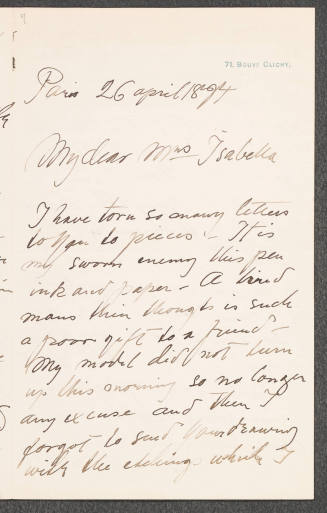 71, BOULD CLICHY.
Paris 26 april 1894
My dear Mrs Isabella
I have torn so many letters
to you to pieces - It is
my sworn enemy this pen
ink and paper - A tired
mans thin thoughts is such
a poor gift to a friend -
My model did not turn
up this morning so no longer
any excuse and then I
forgot to send your drawing
with the etchings which I